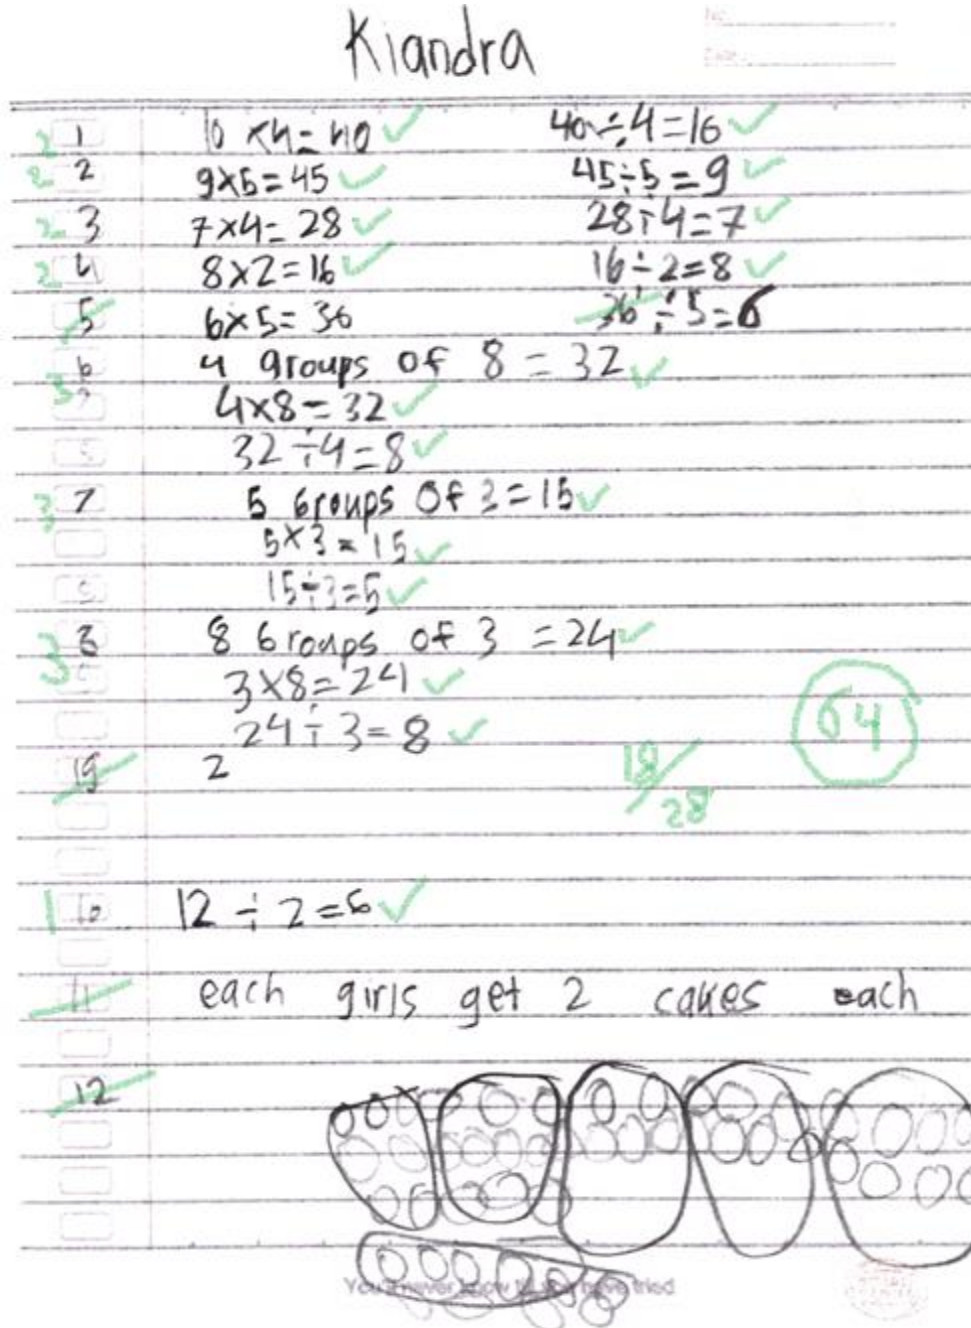 Kiandra
2 1 10 x4=40 ✓ 40÷4=16 ✓
2 2 9x5=45 ✓ 45÷5=9 ✓
2 3 7x4=28 ✓ 28÷4=7 ✓
2 4 8x2=16 ✓ 16÷2=8 ✓
5 6x5=36 36÷5=6
6 4 groups of 8 = 32 ✓
3 4x8=32 ✓
32÷4=8 ✓
3 7 5 Groups of 3=15 ✓
5x3=15 ✓
15÷3=5 ✓
3 8 8 Groups of 3 =24 ✓
3x8=24 ✓
24÷3=8 ✓
64
2
18/28
1 10 12 ÷ 2=6 ✓
11 each girls get 2 cakes each
12
You never know till you have tried